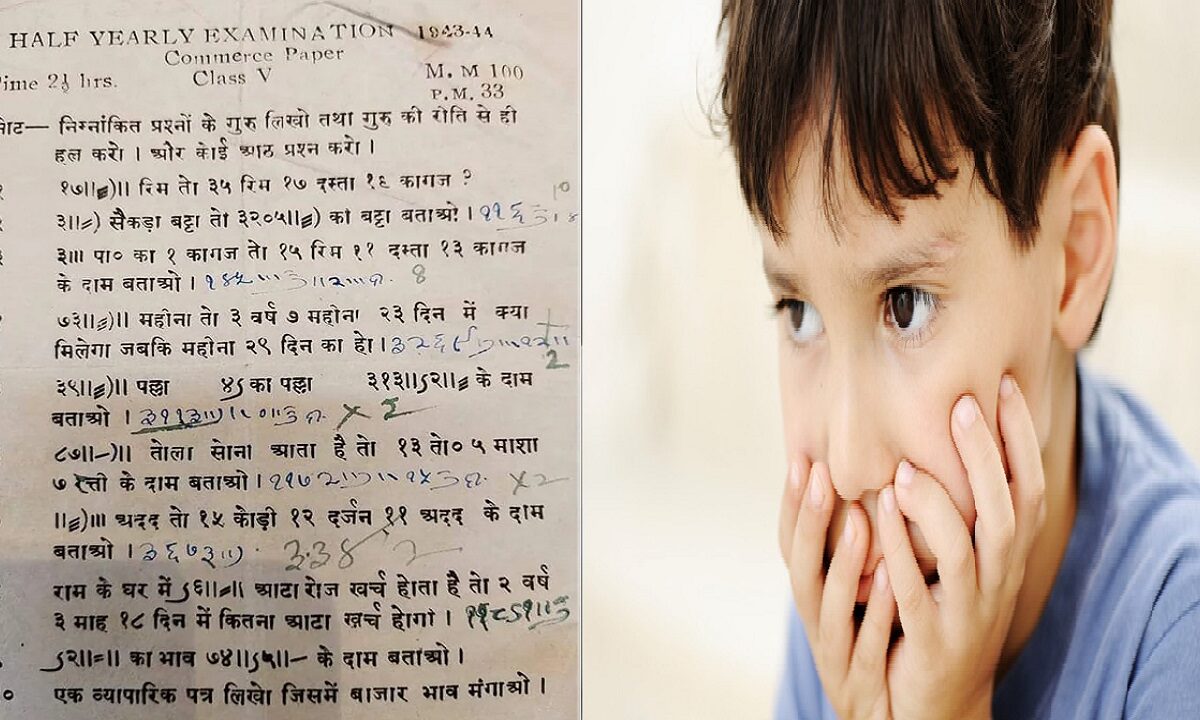 HALF YEARLY EXAMINATION 1943-44
Commerce Paper
Time 2½ hrs. Class V M. M 100
P. M. 33
नोट— निग्नांकित प्रश्नों के गुरु लिखो तथा गुरु की रीति से ही
हल करो । और कोई आठ प्रश्न करो ।
१७॥≡)॥ रिम तो ३५ रिम १७ दस्ता १६ कागज ?
३॥=) सैकड़ा बट्टा तो ३२०५॥≡) का बट्टा बताओ !
३॥। पा० का १ कागज तो १५ रिम ११ दस्ता १३ कागज
के दाम बताओ । 8
७३॥=)॥ महीना तो ३ वर्ष ७ महीना २३ दिन में क्या
मिलेगा जबकि महीना २९ दिन का हो । 2
३९॥≡)॥ पल्ला ४ऽ का पल्ला ३१३॥ऽ२॥≡ के दाम
बताओ । × 2
८७॥-)॥ तोला सोना आता है तो १३ तो० ५ माशा
७ रत्ती के दाम बताओ । ×2
॥≡)॥। अदद तो १५ कोड़ी १२ दर्जन ११ अदद के दाम
बताओ ।
राम के घर में ऽ६॥=॥ आटा रोज खर्च होता है तो २ वर्ष
३ माह १८ दिन में कितना आटा खर्च होगा ।
ऽ२॥=॥ का भाव ७४॥ऽ५॥- के दाम बताओ ।
एक व्यापारिक पत्र लिखो जिसमें बाजार भाव मंगाओ ।